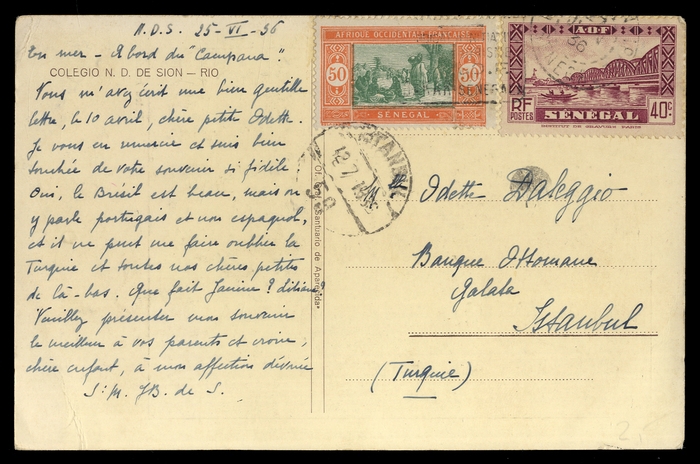 N.D.S. 25-VI-36
En mer - A bord du "Campana".
COLEGIO N. D. DE SION – RIO
Vous m'avez écrit une bien gentille
lettre, le 10 avril, chère petite Odette.
Je vous en remercie et suis bien
touchée de votre souvenir si fidèle
Oui, le Brésil est beau, mais on
y parle portugais et non espagnol,
et il ne peut me faire oublier la
Turquie et toutes nos chères petites
de là-bas. Que fait Janine? Liliane?
Veuillez présenter mon souvenir
le meilleur à vos parents et croire,
chère enfant, à mon affection dévouée
S. M. JB. de S.
Santuario de Aparecida"
AFRIQUE OCCIDENTALE FRANÇAISE
50
50
SÉNÉGAL
AOF
RF
POSTES
SÉNÉGAL
40c
INSTITUT DE GRAVURE PARIS
ISTANBUL
12 7
Odette Daleggio
Banque Ottomane
Galata
Istanbul
(Turquie)